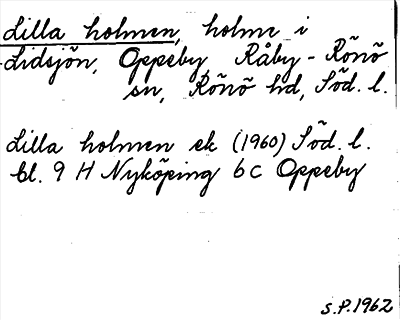 Lilla holmen, holme i
Lidsjön, Oppeby, Råby-Rönö
sn, Rönö hd, Söd. l.
Lilla holmen ek (1960) Söd. l.
bl. 9 H Nyköping 6c Oppeby
S.P. 1962